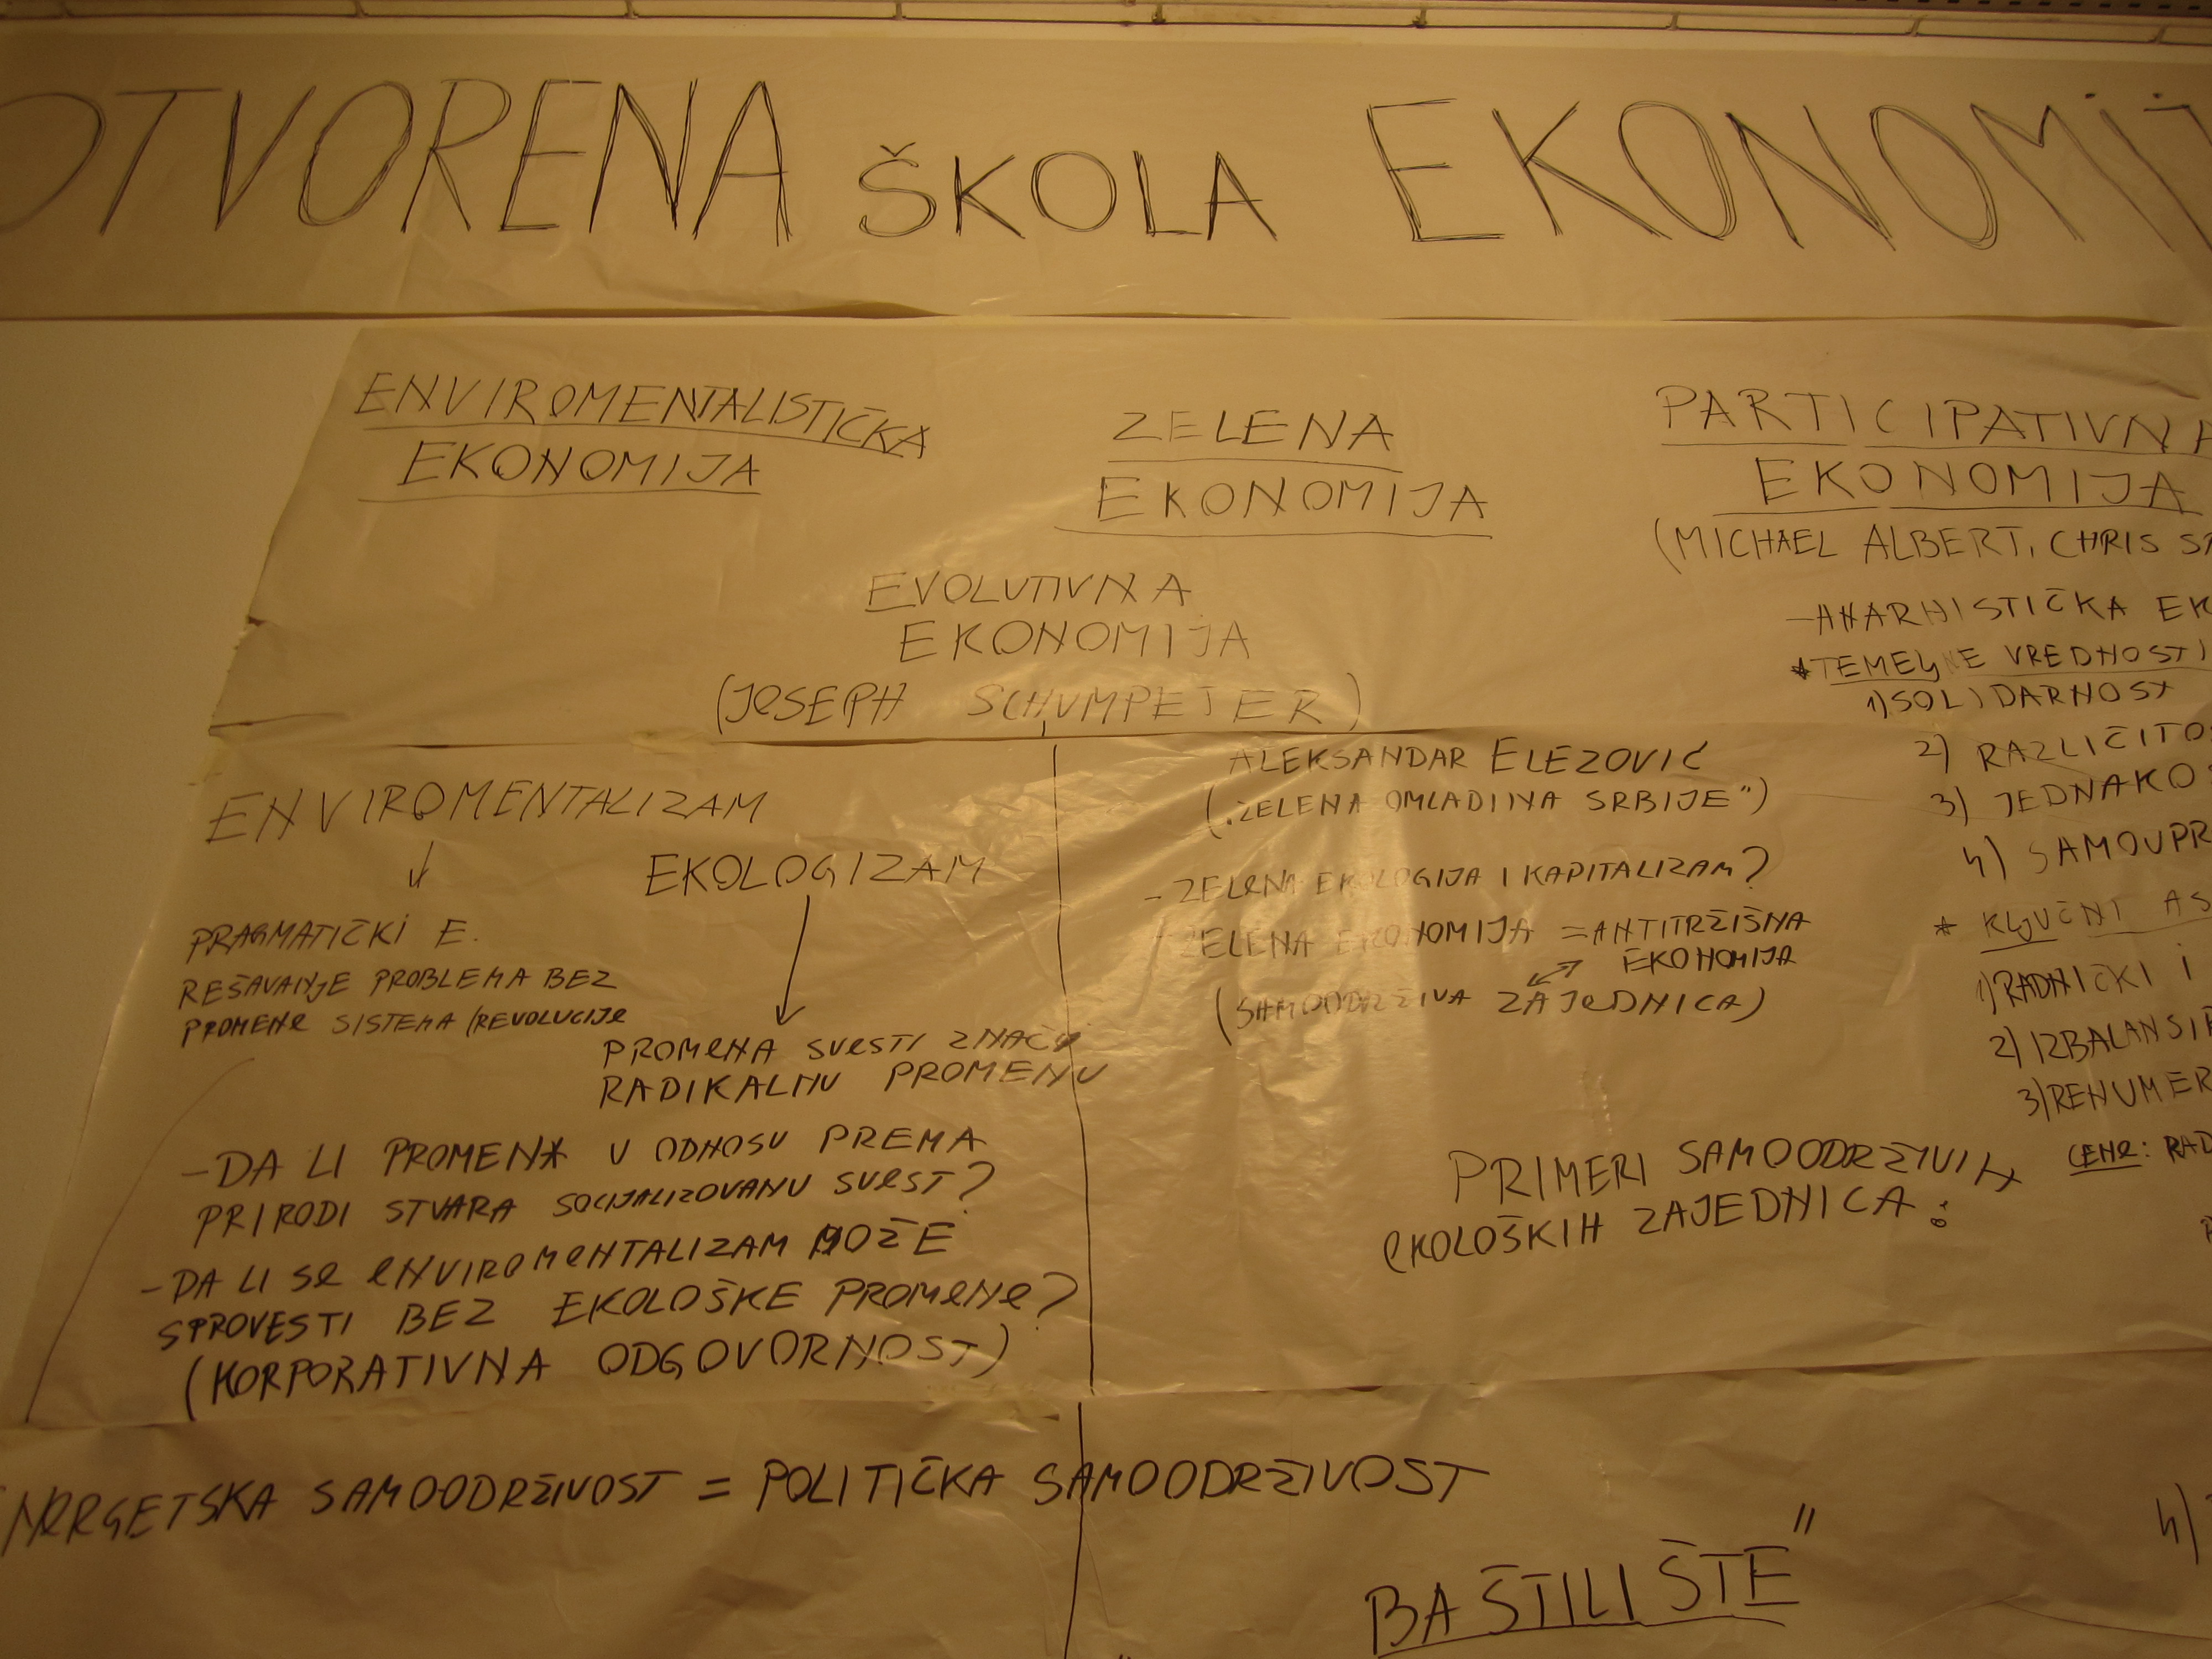 OTVORENA ŠKOLA EKONOMIJ
ENVIROMENTALISTIČKA
EKONOMIJA
ZELENA
EKONOMIJA
EVOLUTIVNA
EKONOMIJA
(JOSEPH SCHUMPETER)
PARTICIPATIVNA
EKONOMIJA
(MICHAEL ALBERT, CHRIS SP
-ANARHISTIČKA EK
*TEMELJNE VREDNOSTI
1) SOLIDARNOST
2) RAZLIČITOS
3) JEDNAKOS
4) SAMOUPR
* KLJUČNI AS
1) RADNIČKI I
2) IZBALANSIR
3) RENUMER
CENE: RAD
4)
ENVIROMENTALIZAM
EKOLOGIZAM
PRAGMATIČKI E.
REŠAVANJE PROBLEMA BEZ
PROMENE SISTEMA (REVOLUCIJE
PROMENA SVESTI ZNAČI
RADIKALNU PROMENU
-DA LI PROMENA U ODNOSU PREMA
PRIRODI STVARA SOCIJALIZOVANU SVEST?
-DA LI SE ENVIROMENTALIZAM MOŽE
SPROVESTI BEZ EKOLOŠKE PROMENE?
(KORPORATIVNA ODGOVORNOST)
ALEKSANDAR ELEZOVIĆ
("ZELENA OMLADINA SRBIJE")
- ZELENA EKOLOGIJA I KAPITALIZAM?
- ZELENA EKONOMIJA = ANTITRŽIŠNA
EKONOMIJA
(SAMOODRŽIVA ZAJEDNICA)
PRIMERI SAMOODRŽIVIH
EKOLOŠKIH ZAJEDNICA:
ENERGETSKA SAMOODRŽIVOST = POLITIČKA SAMOODRŽIVOST
BAŠTILIŠTE"